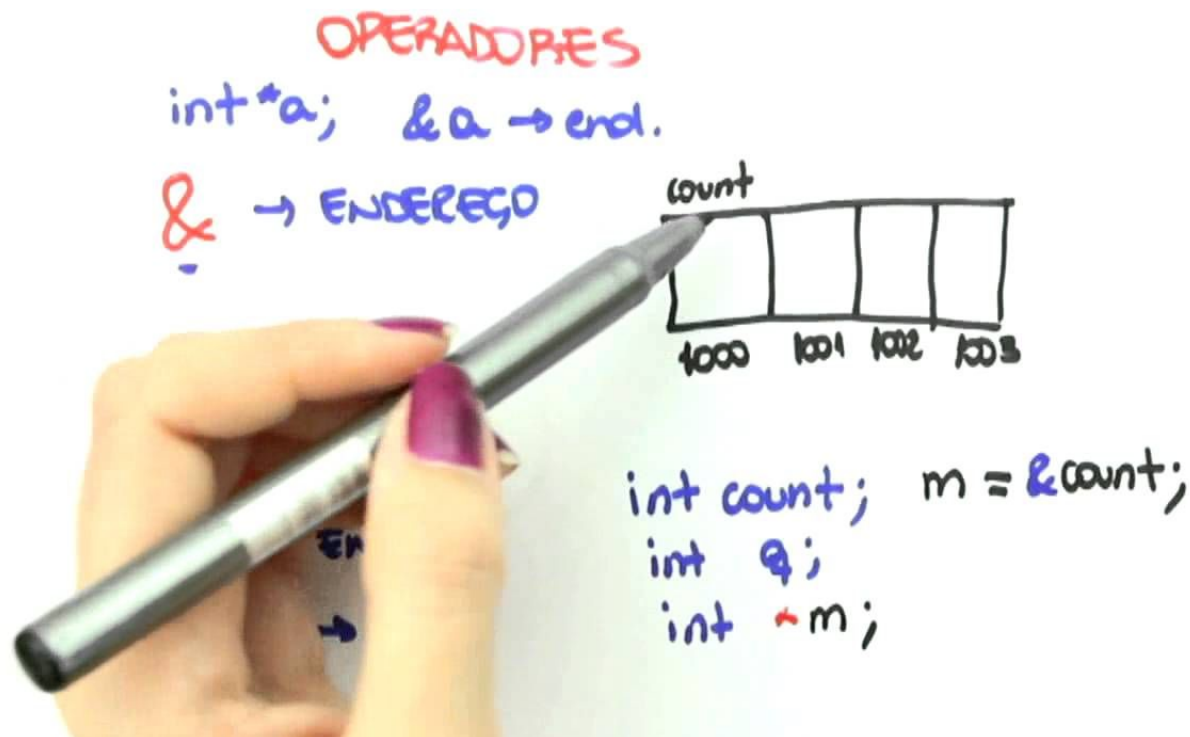 OPERADORES
int *a; &a → end.
& → ENDEREÇO
count
1000 1001 1002 1003
int count; m = &count;
int q;
int *m;
→